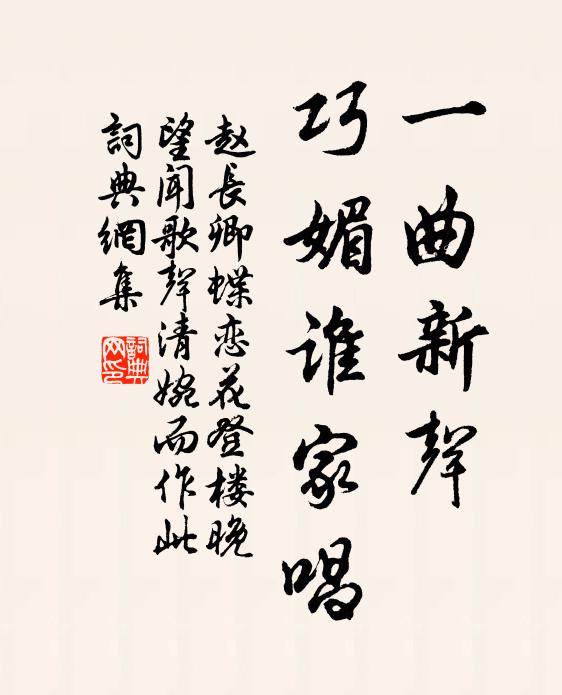 一曲新聲
巧媚谁家唱
赵長卿蝶恋花登楼晚
望闻歌聲清婉而作此
詞典網集
詞典
网印